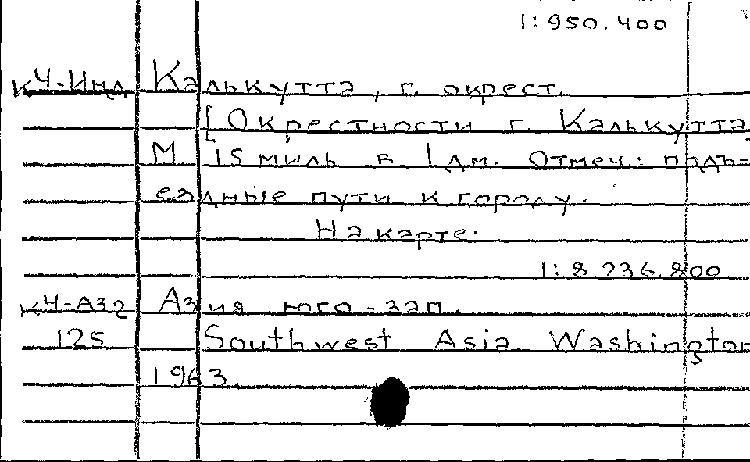 1:950.400
к4-Инд Калькутта, г. окрест.
[Окрестности г. Калькутта]
М 15 миль в 1 дм. Отмеч: подъ-
ездные пути к городу.
На карте:
1:8 236.800
к4-Аз2 Азия юго-зап.
125 Southwest Asia Washington
1963